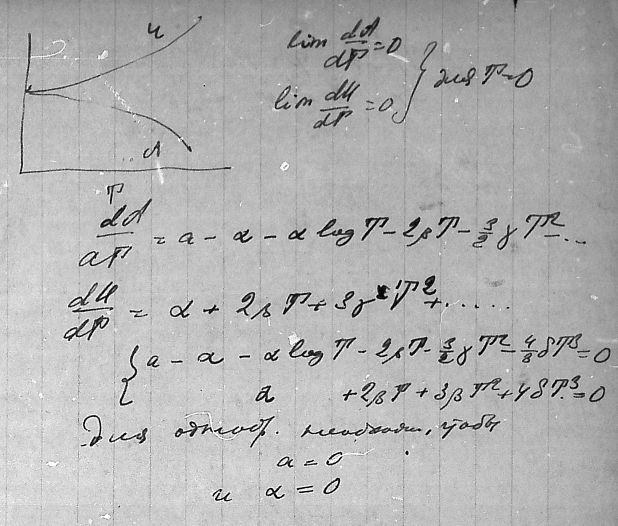 U
A
T
lim dA/dT = 0
lim dU/dT = 0 } для T=0
dA/dT = a - α - α log T - 2βT - 3/2 γT² - ...
dU/dT = α + 2βT + 3γT² + .....
{ a - α - α log T - 2βT - 3/2 γT² - 4/3 δT³ = 0
α + 2βT + 3βT² + 4δT³ = 0
Для необходим, чтобы
a = 0
и α = 0